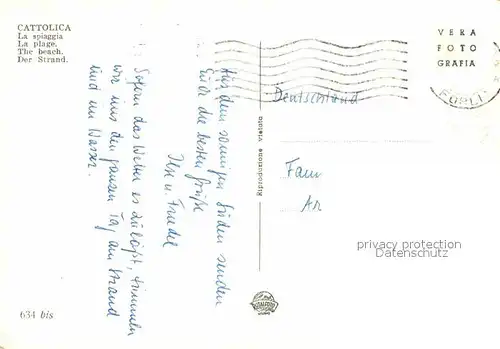 CATTOLICA
La spiaggia
La plage.
The beach.
Der Strand.
VERA
FOTO
GRAFIA
FORLI'
Deutschland
Aus dem sonnigen Süden senden
Euch die besten Grüße
Ilse u. Friedel
Sofern das Wetter es zuläßt, tummeln
wir uns den ganzen Tag am Strand
und im Wasser.
Riproduzione vietata
Fam
Ar
privacy protection
DATENSCHUTZ
634 bis